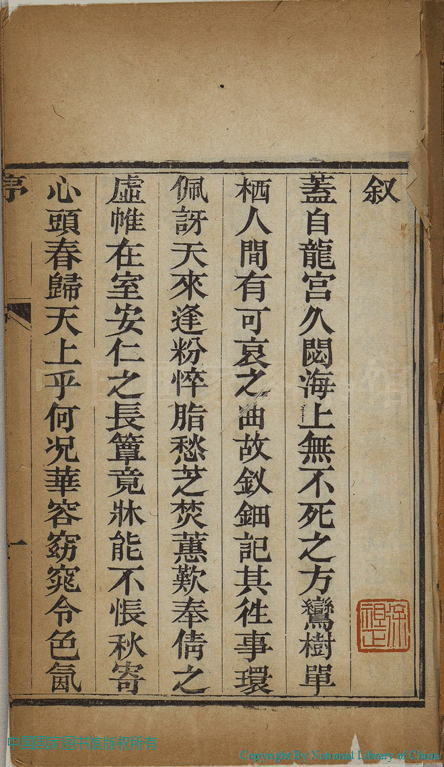 叙
蓋自龍宮久閟海上無不死之方鸞樹單
栖人間有可哀之曲故釵鈿記其徃事環
佩訝天來逢粉悴脂愁芝焚蕙歎奉倩之
虛帷在室安仁之長簟竟牀能不悵秋寄
心頭春歸天上乎何况華容窈窕令色氤
序
一
Copyright By National Library of China